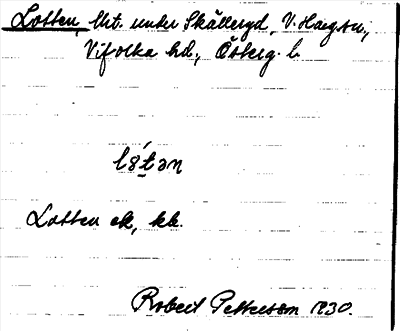 Lotten, lht. under Skälleryd, V. Harg sn,
Vifolka hd, Österg. l.
Lotten ek, kb.
Robert Pettersson 1930.